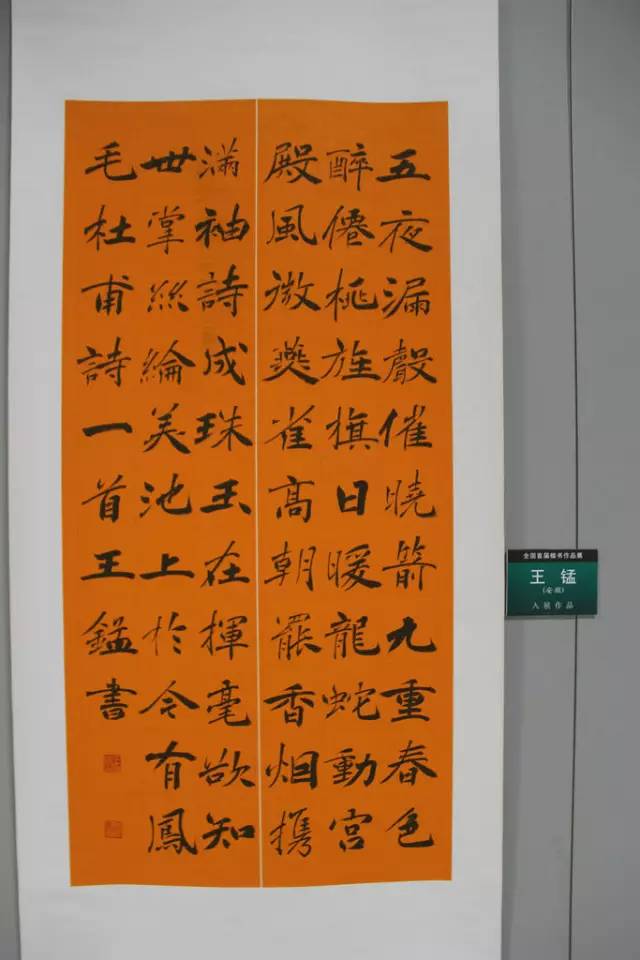 五夜漏聲催曉箭九重春色
醉僊桃旌旗日暖龍蛇動宮
殿風微燕雀高朝罷香烟携
滿袖詩成珠玉在揮毫欲知
世掌絲綸美池上於今有鳳
毛杜甫詩一首王錳書
全国首届楷书作品展
王 锰
入展作品